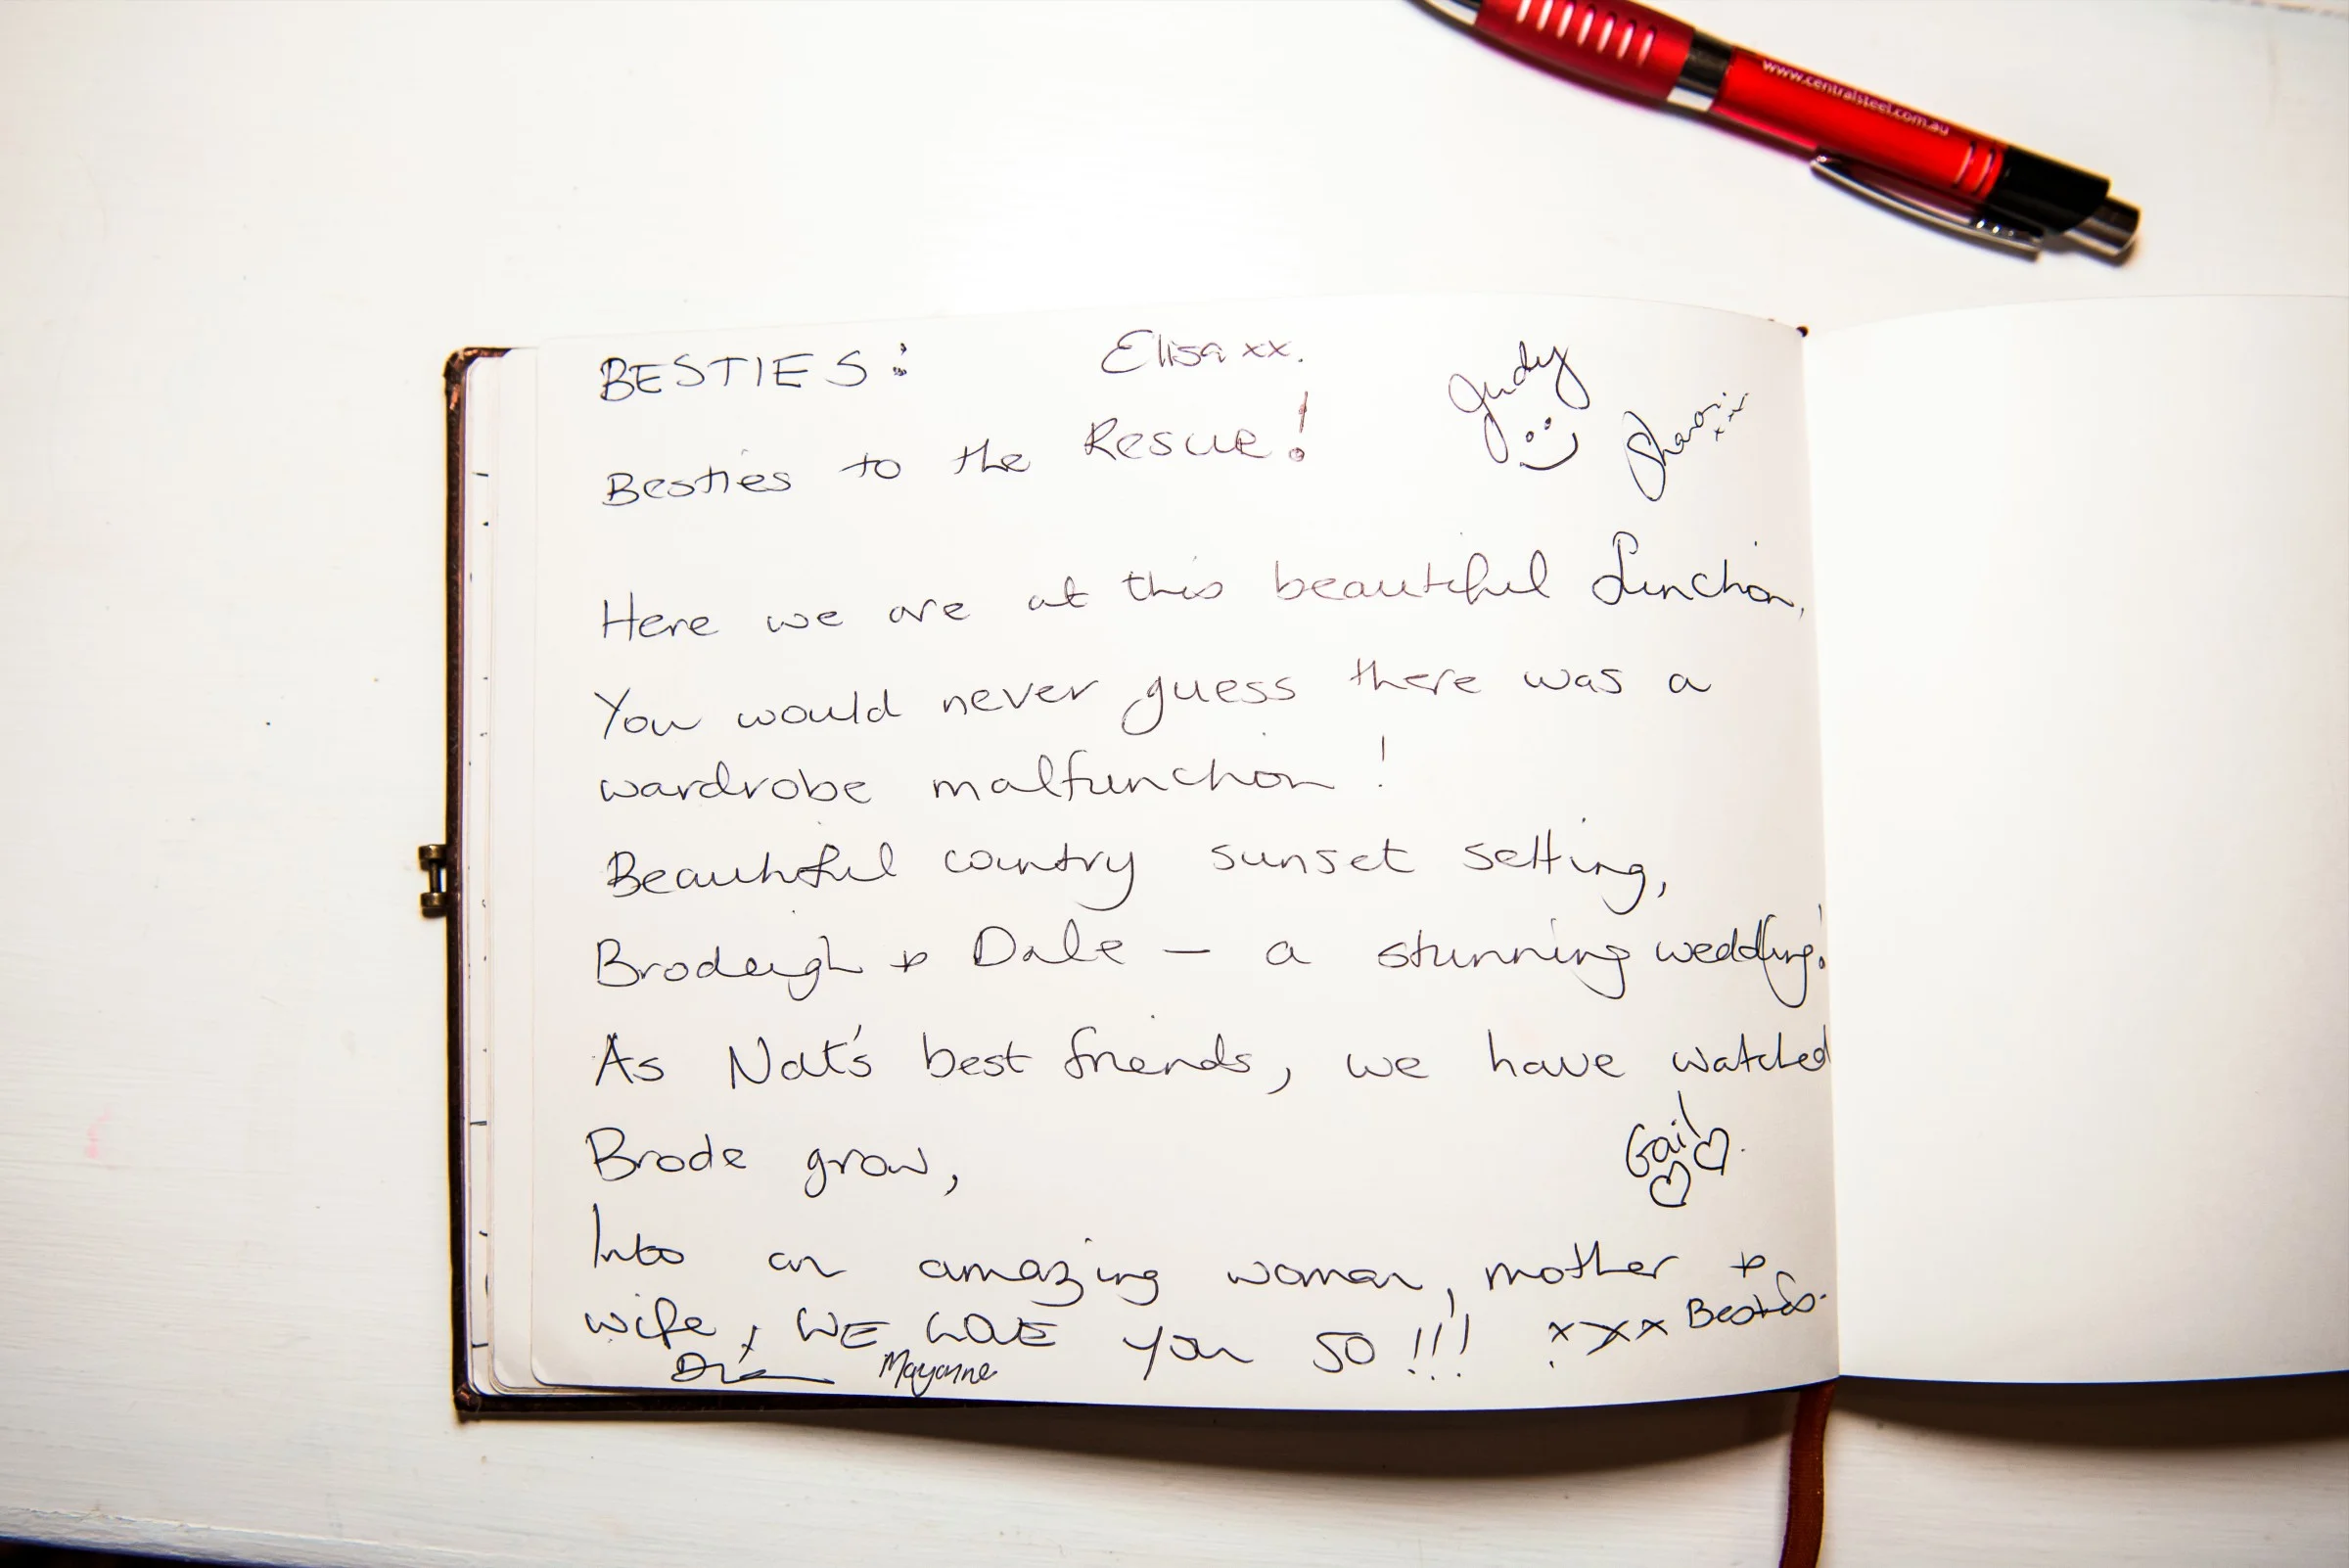 www.centralsteel.com.au
BESTIES: Elisa xx.
Judy
Sharon xxx
Besties to the Rescue!
Here we are at this beautiful Function,
You would never guess there was a
wardrobe malfunction!
Beautiful country sunset setting,
Brodeigh & Dale – a stunning wedding!
As Nat's best friends, we have watched
Brode grow,
Gail
Into an amazing woman, mother &
wife, WE LOVE You SO!!! xxx Besties.
Mayanne